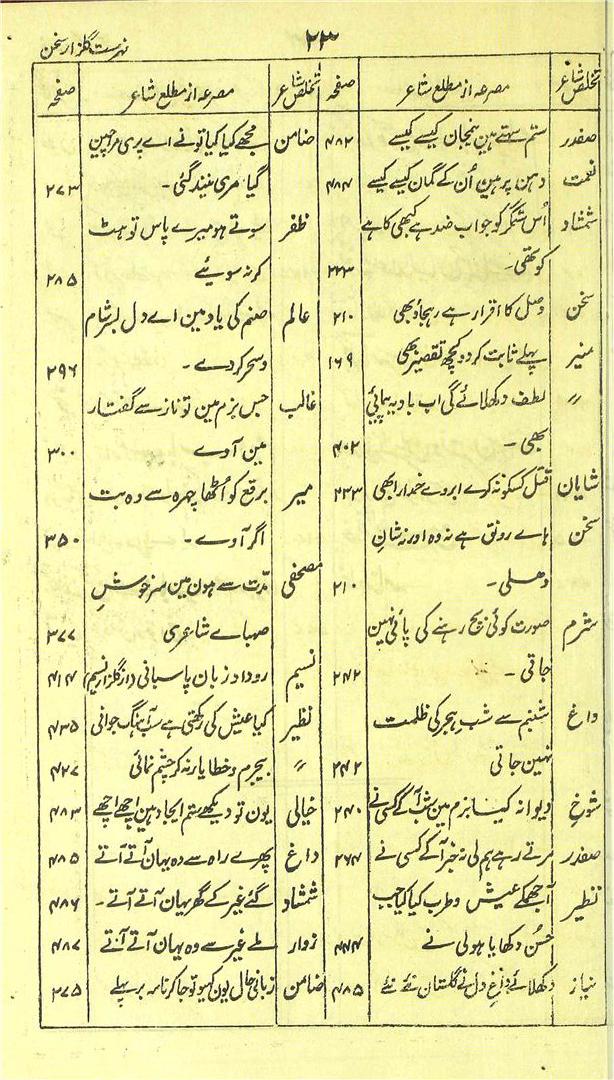 ۲۳
فہرست گلزار سخن
تخلص شاعر مصرعہ از مطلع شاعر صفحہ
صفدر ستم سہتے ہین بیجان کیسے کیسے ۴۸۲
نعمت دہن پر ہین اُن کے گمان کیسے کیسے ۴۸۴
شمشاد اُس ستمگر کو جواب ضد ہے کبھی کا ہے
کو تھی۔ ۲۲۳
سخن وصل کا اقرار ہے رہجاؤ بھی ۲۱۰
منیر پہلے ثابت کردو کچھ تقصیر بھی ۱۶۹
〃 لطف دکھلائے گی اب بادیہ پیمائی
بھی۔ ۴۰۲
شایان قتل کسکو نہ کرے ابروے خمدار ابھی ۲۳۳
سخن ہاے رونق ہے نہ وہ اور نہ شانِ
دہلی۔ ۲۱۰
شرم صورت کوئی بچ رہنے کی پائی نہین
جاتی۔ ۲۴۲
داغ شبنم سے شب ہجر کی ظلمت
نہین جاتی ۲۴۲
شوخ دیوانہ کیا بزم مین شب آکے کسی نے ۲۴۰
صفدر مرتے رہے ہم لی نہ خبر آکے کسی نے ۲۶۴
نظیر آجھمکے عیش و طرب کیا کیا جب
حُسن دکھایا ہولی نے ۴۴۴
نیاز دکھلائے داغ دل نے گلستان نئے نئے ۴۸۵
تخلص شاعر مصرعہ از مطلع شاعر صفحہ
ضامن مجھے کیا کیا تو نے اے پری مہ جبین
گیا مری نیند گئی۔ ۲۷۳
ظفر سوتے ہو میرے پاس تو ہٹ
کر نہ سوئیے ۲۸۵
عالم صنم کی یاد مین اے دل بسر شام
و سحر کردے۔ ۲۹۶
غالب جس بزم مین تو ناز سے گفتار
مین آوے ۳۰۰
میر برقع کو اُٹھا چہرہ سے وہ بت
اگر آوے۔ ۳۵۰
مصحفی مدّت سے ہون مین سرخوشِ
صہباے شاعری ۳۷۷
نسیم روداد زبان پاسبانی (از گلزار نسیم) ۴۱۴
نظیر کیا عیش کی رکھتی ہے سب آہنگ جوانی ۴۳۵
〃 بیجرم و خطا یار نہ کر چشم نمائی ۴۲۷
خیالی یون تو دیکھے ستم ایجاد ہین اچھے اچھے ۴۸۳
داغ پھرے راہ سے وہ یہان آتے آتے ۴۸۵
شمشاد گئے غیر کے گھر یہان آتے آتے۔ ۴۸۶
زوار ملے غیر سے وہ یہان آتے آتے ۴۸۷
ضامن زبانی حال یون کہیو تو جا کر نامہ بر پہلے ۲۷۵